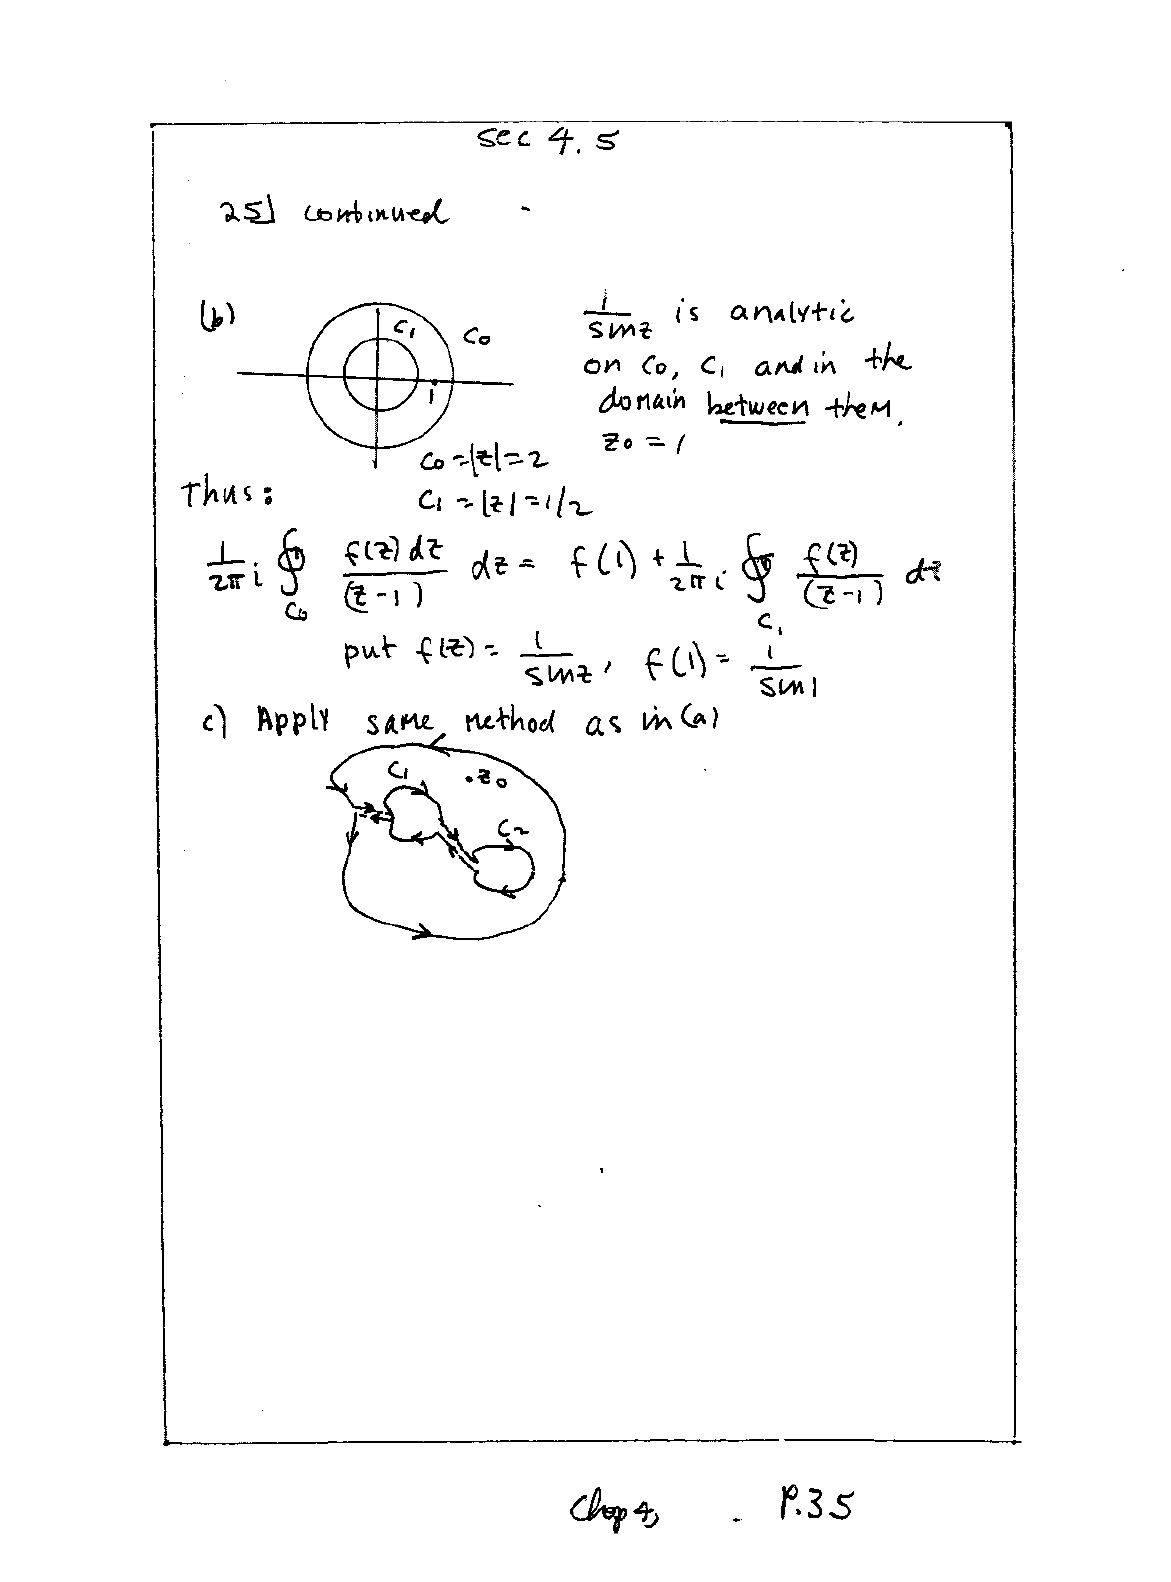 sec 4.5
25] continued
(b)
C1
C0
1
1/sinz is analytic
on C0, C1 and in the
domain between them.
z0 = 1
C0 = |z| = 2
Thus:
C1 = |z| = 1/2
1/2πi ∮C0 f(z) dz/(z-1) dz = f(1) + 1/2πi ∮C1 f(z)/(z-1) dz
put f(z) = 1/sinz, f(1) = 1/sin1
c) Apply same method as in (a)
C1
.z0
C2
Chap 4, P.35